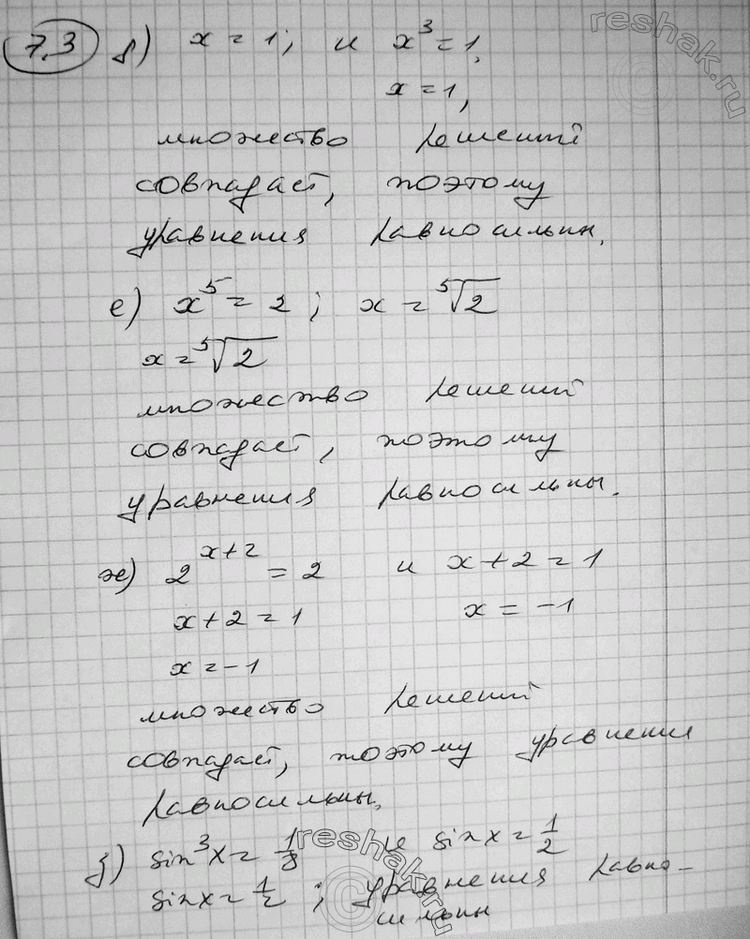 7.3 д) x = 1; и x³ = 1,
x = 1,
множество решений
совпадает, поэтому
уравнения равносильны.
е) x⁵ = 2; x = ⁵√2
x = ⁵√2
множество решений
совпадает, поэтому
уравнения равносильны.
ж) 2^(x+2) = 2 и x + 2 = 1
x + 2 = 1 x = -1
x = -1
множество решений
совпадает, поэтому уравнения
равносильны,
з) sin³x = 1/8 и sin x = 1/2
sin x = 1/2; уравнения равно-
сильны
reshak.ru
reshak.ru